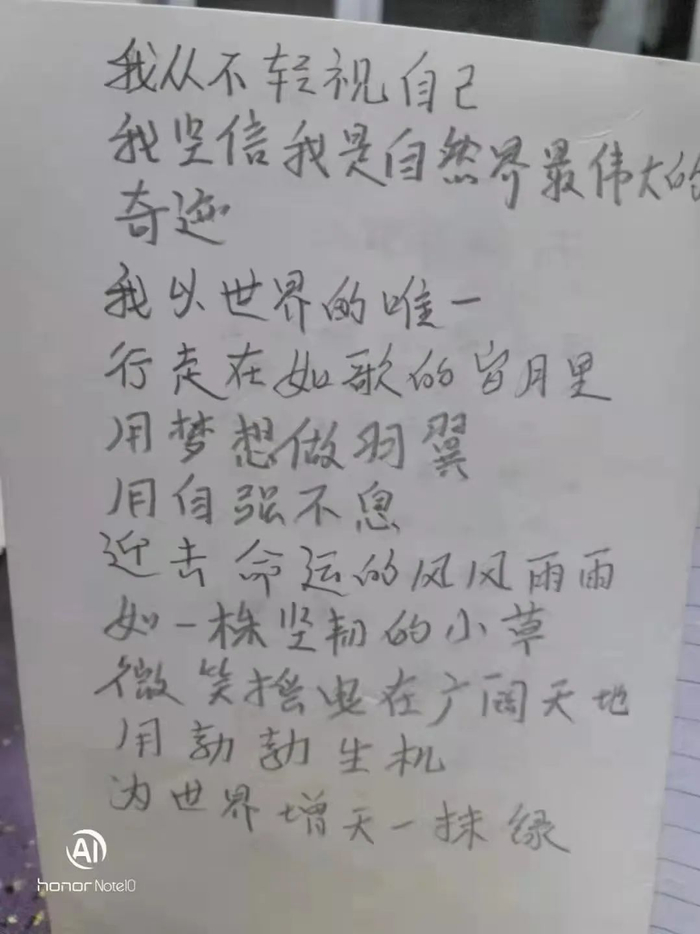 我从不轻视自己
我坚信我是自然界最伟大的
奇迹
我以世界的唯一
行走在如歌的岁月里
用梦想做羽翼
用自强不息
迎去命运的风风雨雨
如一株坚韧的小草
微笑摇曳在广阔天地
用勃勃生机
为世界增天一抹绿
AI
honor Note10